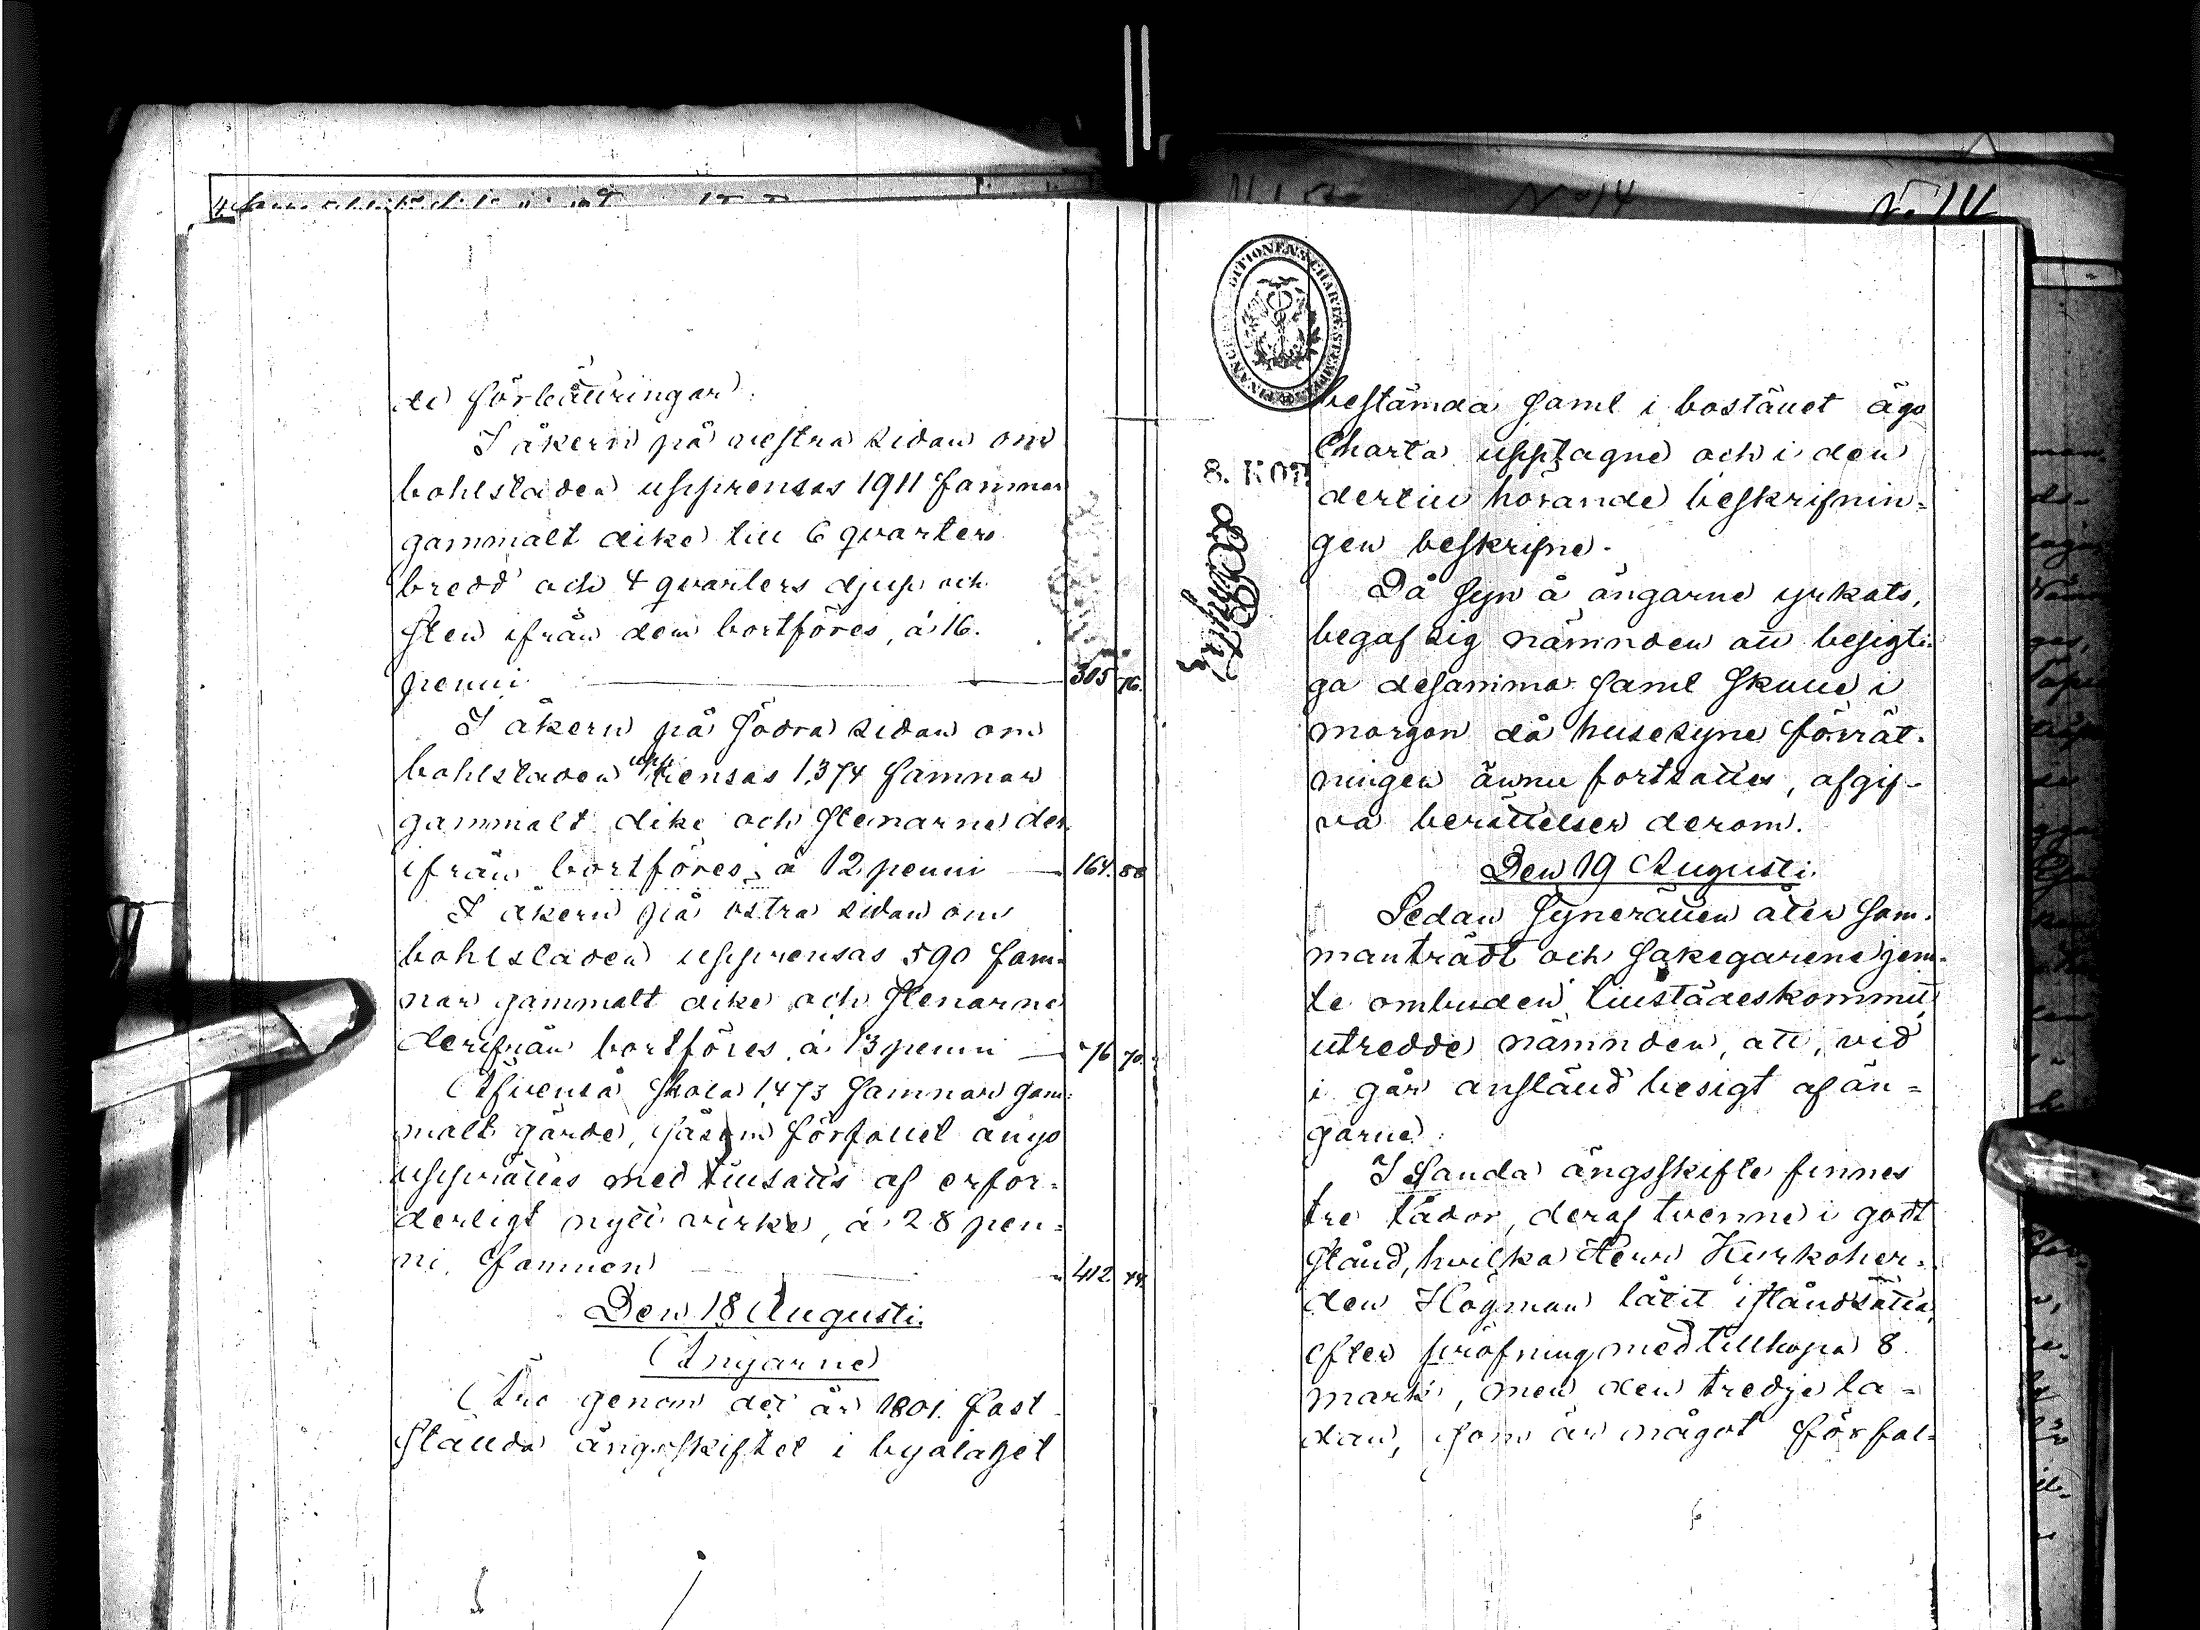 de förbättringar.
I åkern på vestra sidan om
bohlstaden upprensas 1911 famnar
gammalt dike till 6 qvarters
bredd och 4 qvarters djup och
sten ifrån dem bortföres, á 16.
penni 305 76.
I åkern på södra sidan om
bohlstaden upprensas 1,374 famnar
gammalt dike och stenarne der
ifrån bortföres, á 12 penni 164. 88
I åkern på östra sidan om
bohlstaden upprensas 590 fam-
nar gammalt dike och stenarne
derifrån bortföres, á 13 penni 76 70.
Äfvenså skola 1,473 famnar gam-
malt gärde, såsom förfallet ånyo
upprättas med tillsatts af erfor-
derligt nytt virke, á 28 pen-
ni famnen 412. 44.
Den 18 Augusti.
Ängarne
Äro genom det år 1801. fast
stälda ängsskiftet i byalaget
No 14
No 14
FINANCE EXPEDITIONENS CHARTÆ STEMPEL
8. KOP.
bestämda samt i bostället ägo
Charta upptagne och i den
dertill hörande beskrifnin-
gen beskrifne.
Då syn å ängarne yrkats,
begaf sig nämnden att besigti-
ga desamma samt skulle i
morgon då husesyne förrät-
ningen ännu fortsattes, afgif-
va berättelser derom.
Den 19 Augusti.
Sedan Synerätten åter sam-
manträdt och sakegarene jem-
te ombuden tillstädeskommit,
utredde nämnden, att, vid
i går anstäld besigt af än-
garne.
I Sanda ängsskifte finnes
tre lador, deraf tvenne i godt
stånd, hvilka Herr Kyrkoher-
den Högman låtit iståndsätta,
efter pröfning med tillhopa 8
mark, men den tredje la-
dan, som är något förfal-